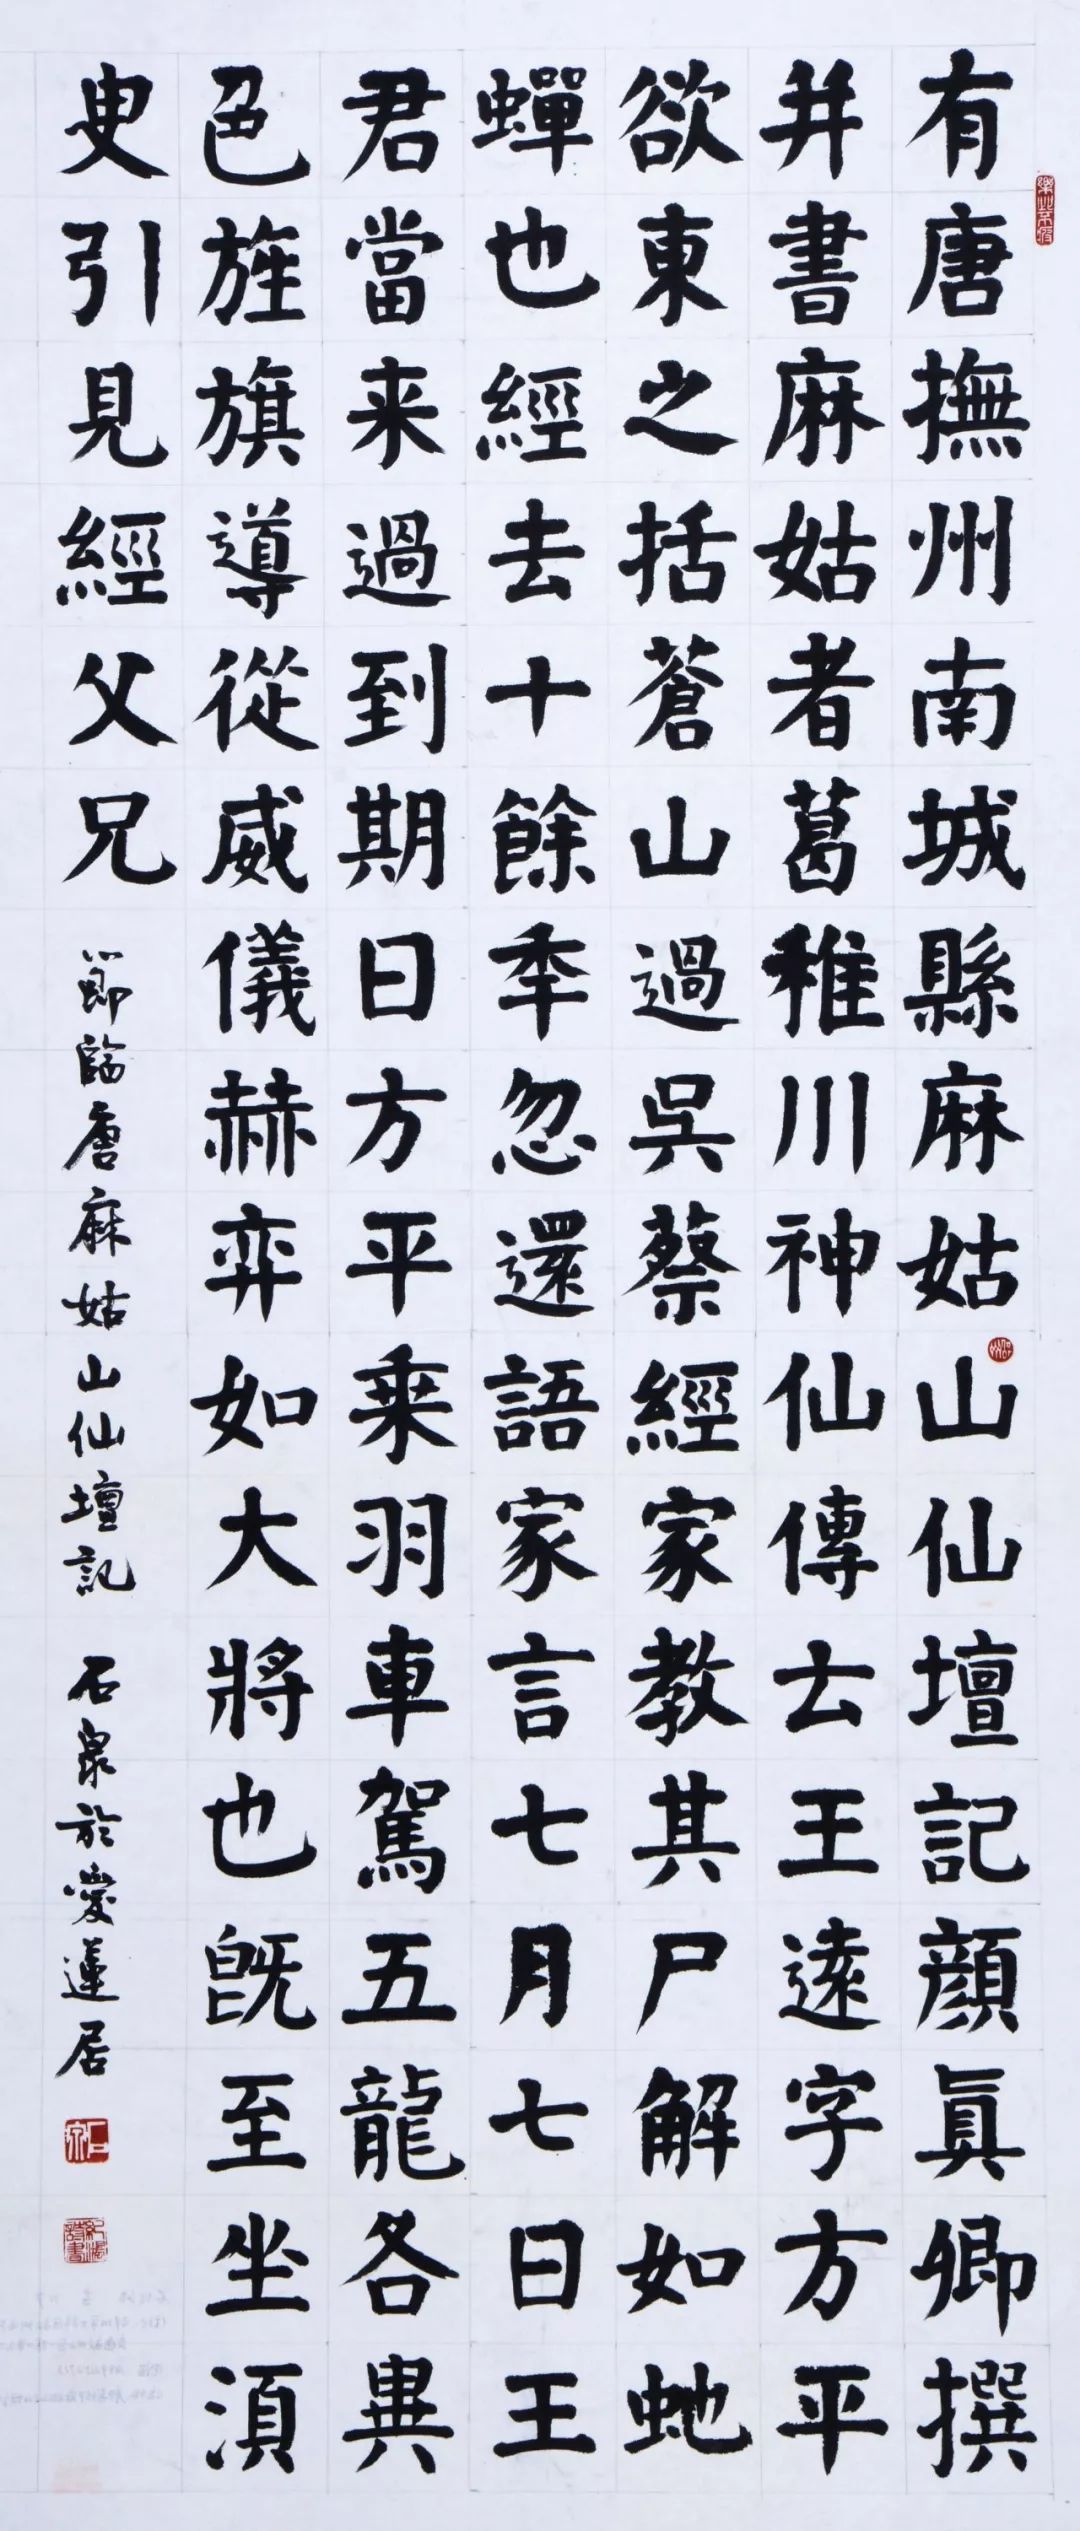 有唐撫州南城縣麻姑山仙壇記顔真卿撰
并書麻姑者葛稚川神仙傳云王遠字方平
欲東之括蒼山過吳蔡經家教其尸解如虵
蟬也經去十餘年忽還語家言七月七日王
君當来過到期日方平乗羽車駕五龍各異
色旌旗導從威儀赫弈如大將也旣至坐須
叟引見經父兄
節臨唐麻姑山仙壇記 石泉於愛蓮居